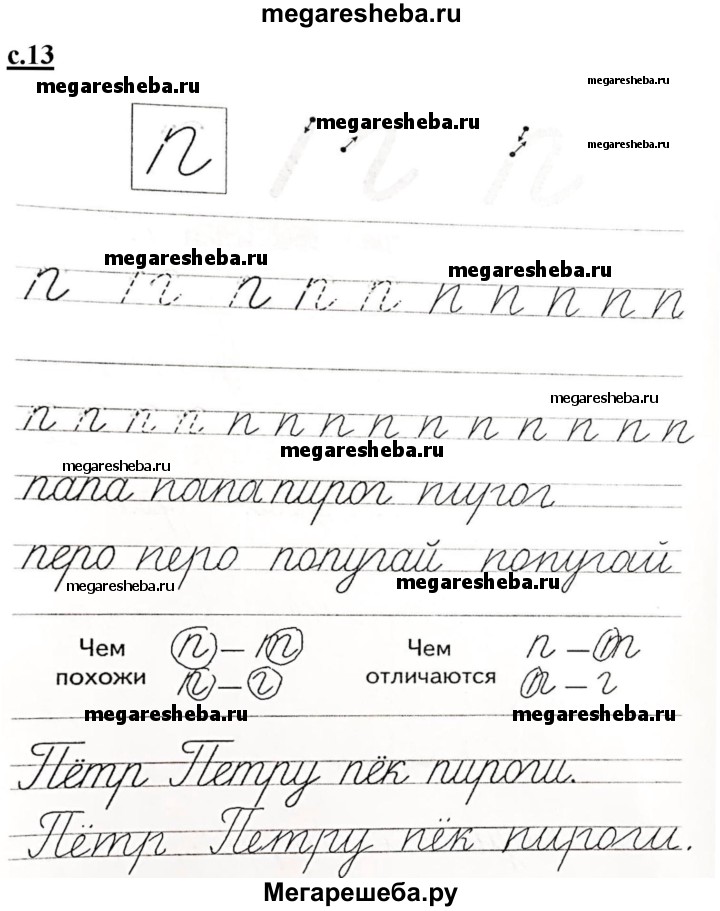 megaresheba.ru
с.13
megaresheba.ru
megaresheba.ru
п
megaresheba.ru
megaresheba.ru
megaresheba.ru
megaresheba.ru
п п п п п п п п п п
megaresheba.ru
п п п п п п п п п п п п п п
megaresheba.ru
megaresheba.ru
папа папа пирог пирог
перо перо попугай попугай
megaresheba.ru
megaresheba.ru
Чем похожи п – т Чем отличаются п – т
п – г п – г
megaresheba.ru
megaresheba.ru
Пётр Петру пёк пироги.
Пётр Петру пёк пироги.
Мегарешеба.ру